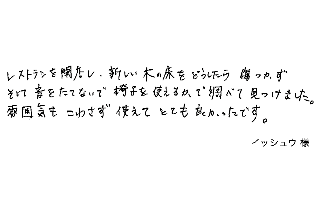 レストランを開店し、新しい木の床をどうしたら傷つかず
そして音をたてないで椅子を使えるか、で調べて見つけました。
雰囲気もこわさず使えてとても良かったです。
イッシュウ様